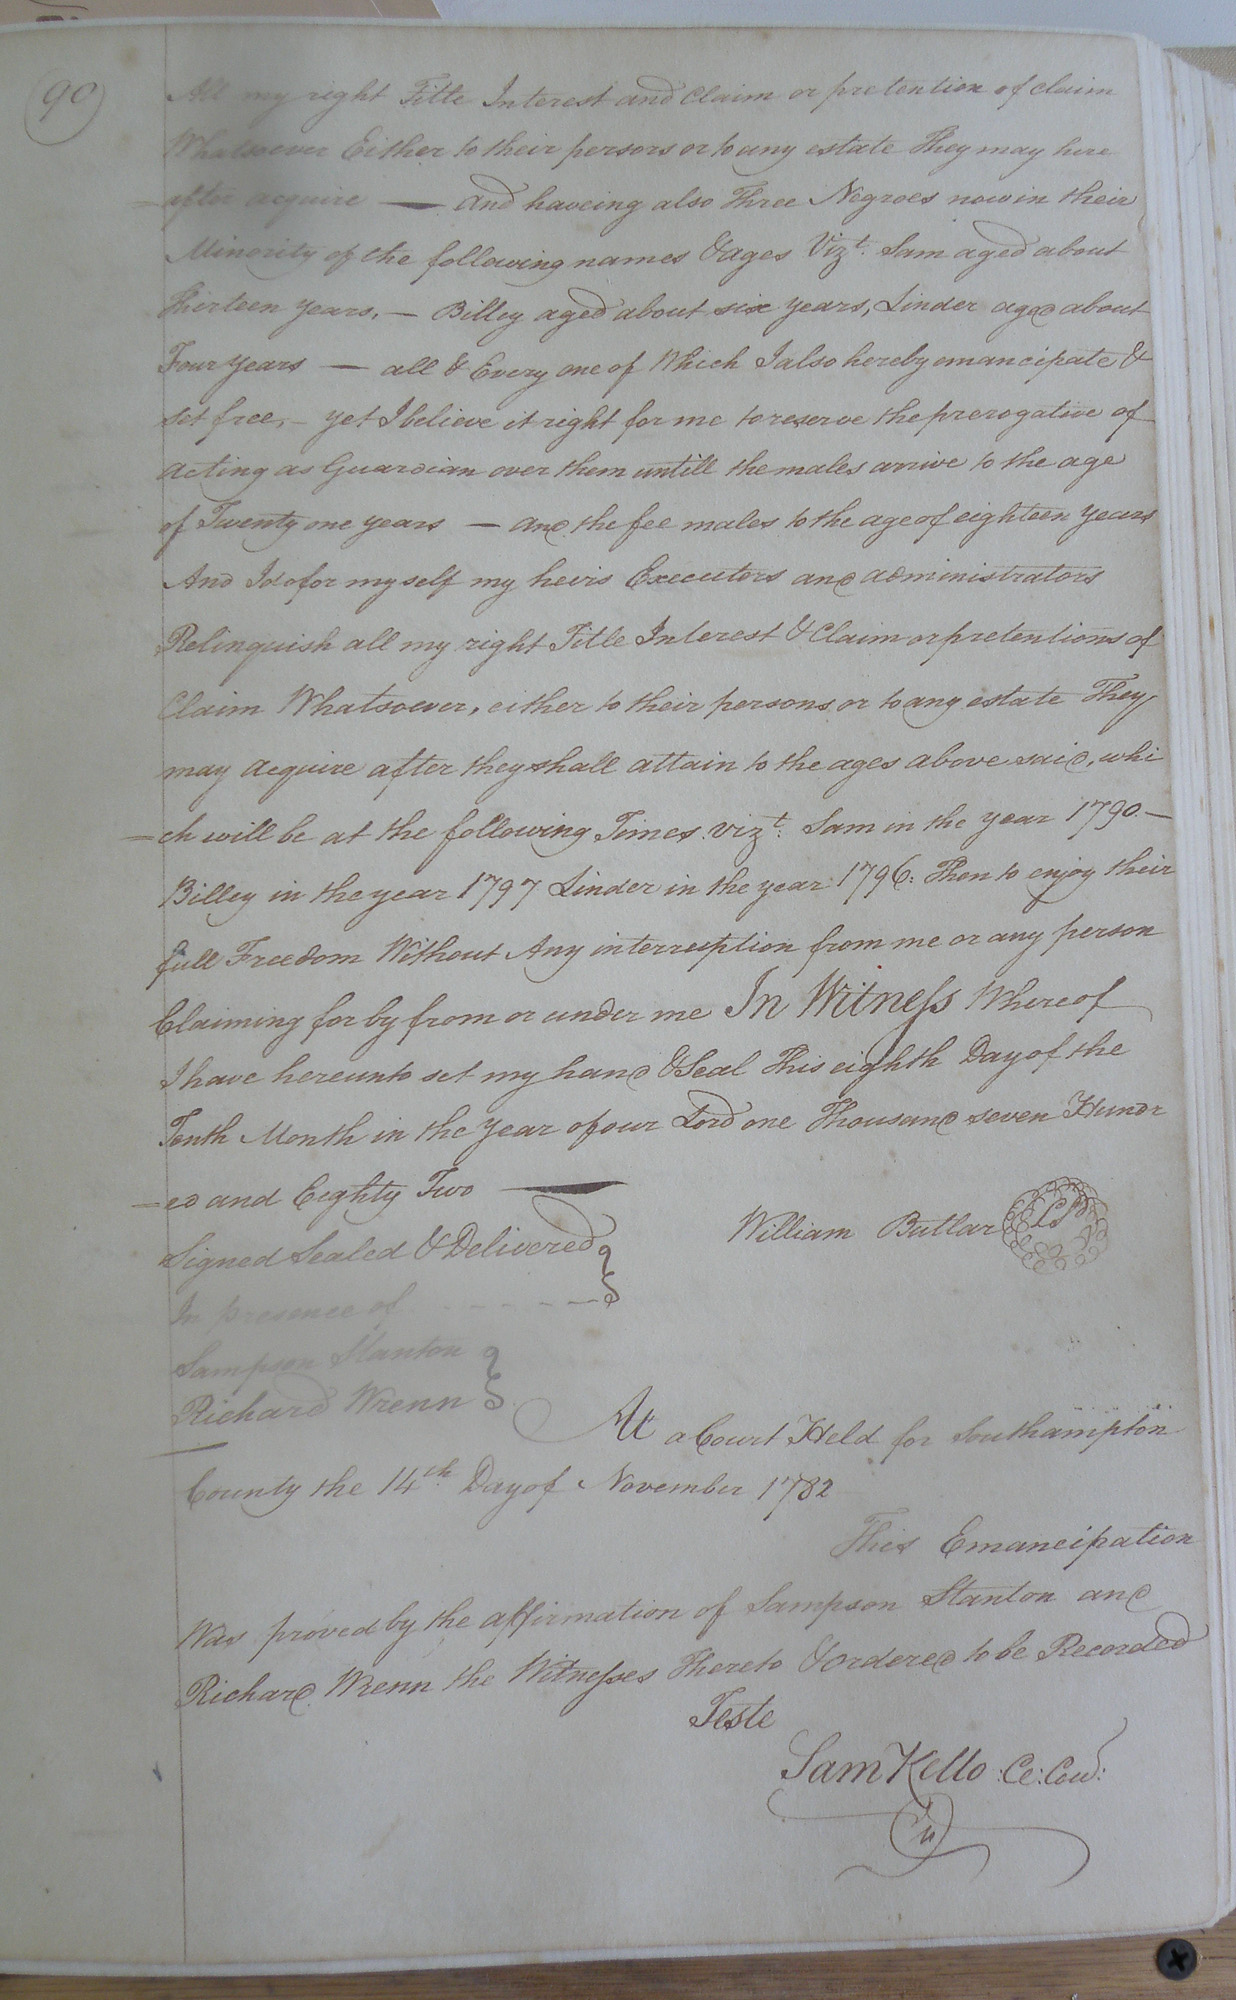 90
All my right Title Interest and Claim or pretention of claim
Whatsoever Either to their persons or to any estate They may here
=after acquire — And haveing also Three Negroes now in their
Minority of the following names & ages Vizt. Sam aged about
Thirteen years, — Billey aged about six years, Linder aged about
Four years — all & Every one of Which I also hereby emancipate &
set free, – yet I believe it right for me to reserve the prerogative of
acting as Guardian over them untill the males arrive to the age
of Twenty one years — and the fee males to the age of eighteen years
And I do for my self my heirs Executors and administrators
Relinquish all my right Title Interest & Claim or pretentions of
Claim Whatsoever, either to their persons or to any estate They
may acquire after they shall attain to the ages above said, whi
=ch will be at the following Times vizt: Sam in the year 1790 —
Billey in the year 1797 Linder in the year 1796: Then to enjoy their
full Freedom Without Any interruption from me or any person
Claiming for by from or under me In Witness Whereof
I have hereunto set my hand & Seal This eighth Day of the
Tenth Month in the year of our Lord one Thousand seven Hundr
=ed and Eighty Two —
William Butlar LS
Signed Sealed & Delivered
In presence of
Sampson Stanton
Richard Wrenn
At a Court Held for Southampton
County the 14th Day of November 1782
This Emancipation
Was proved by the affirmation of Sampson Stanton and
Richard Wrenn the Witnesses Thereto & ordered to be Recorded
Teste
Sam Kello :Ce:Cou: